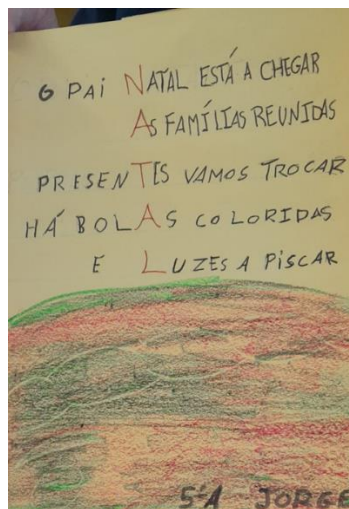 O PAI NATAL ESTÁ A CHEGAR
AS FAMÍLIAS REUNIDAS
PRESENTES VAMOS TROCAR
HÁ BOLAS COLORIDAS
E LUZES A PISCAR
5ºA JORGE